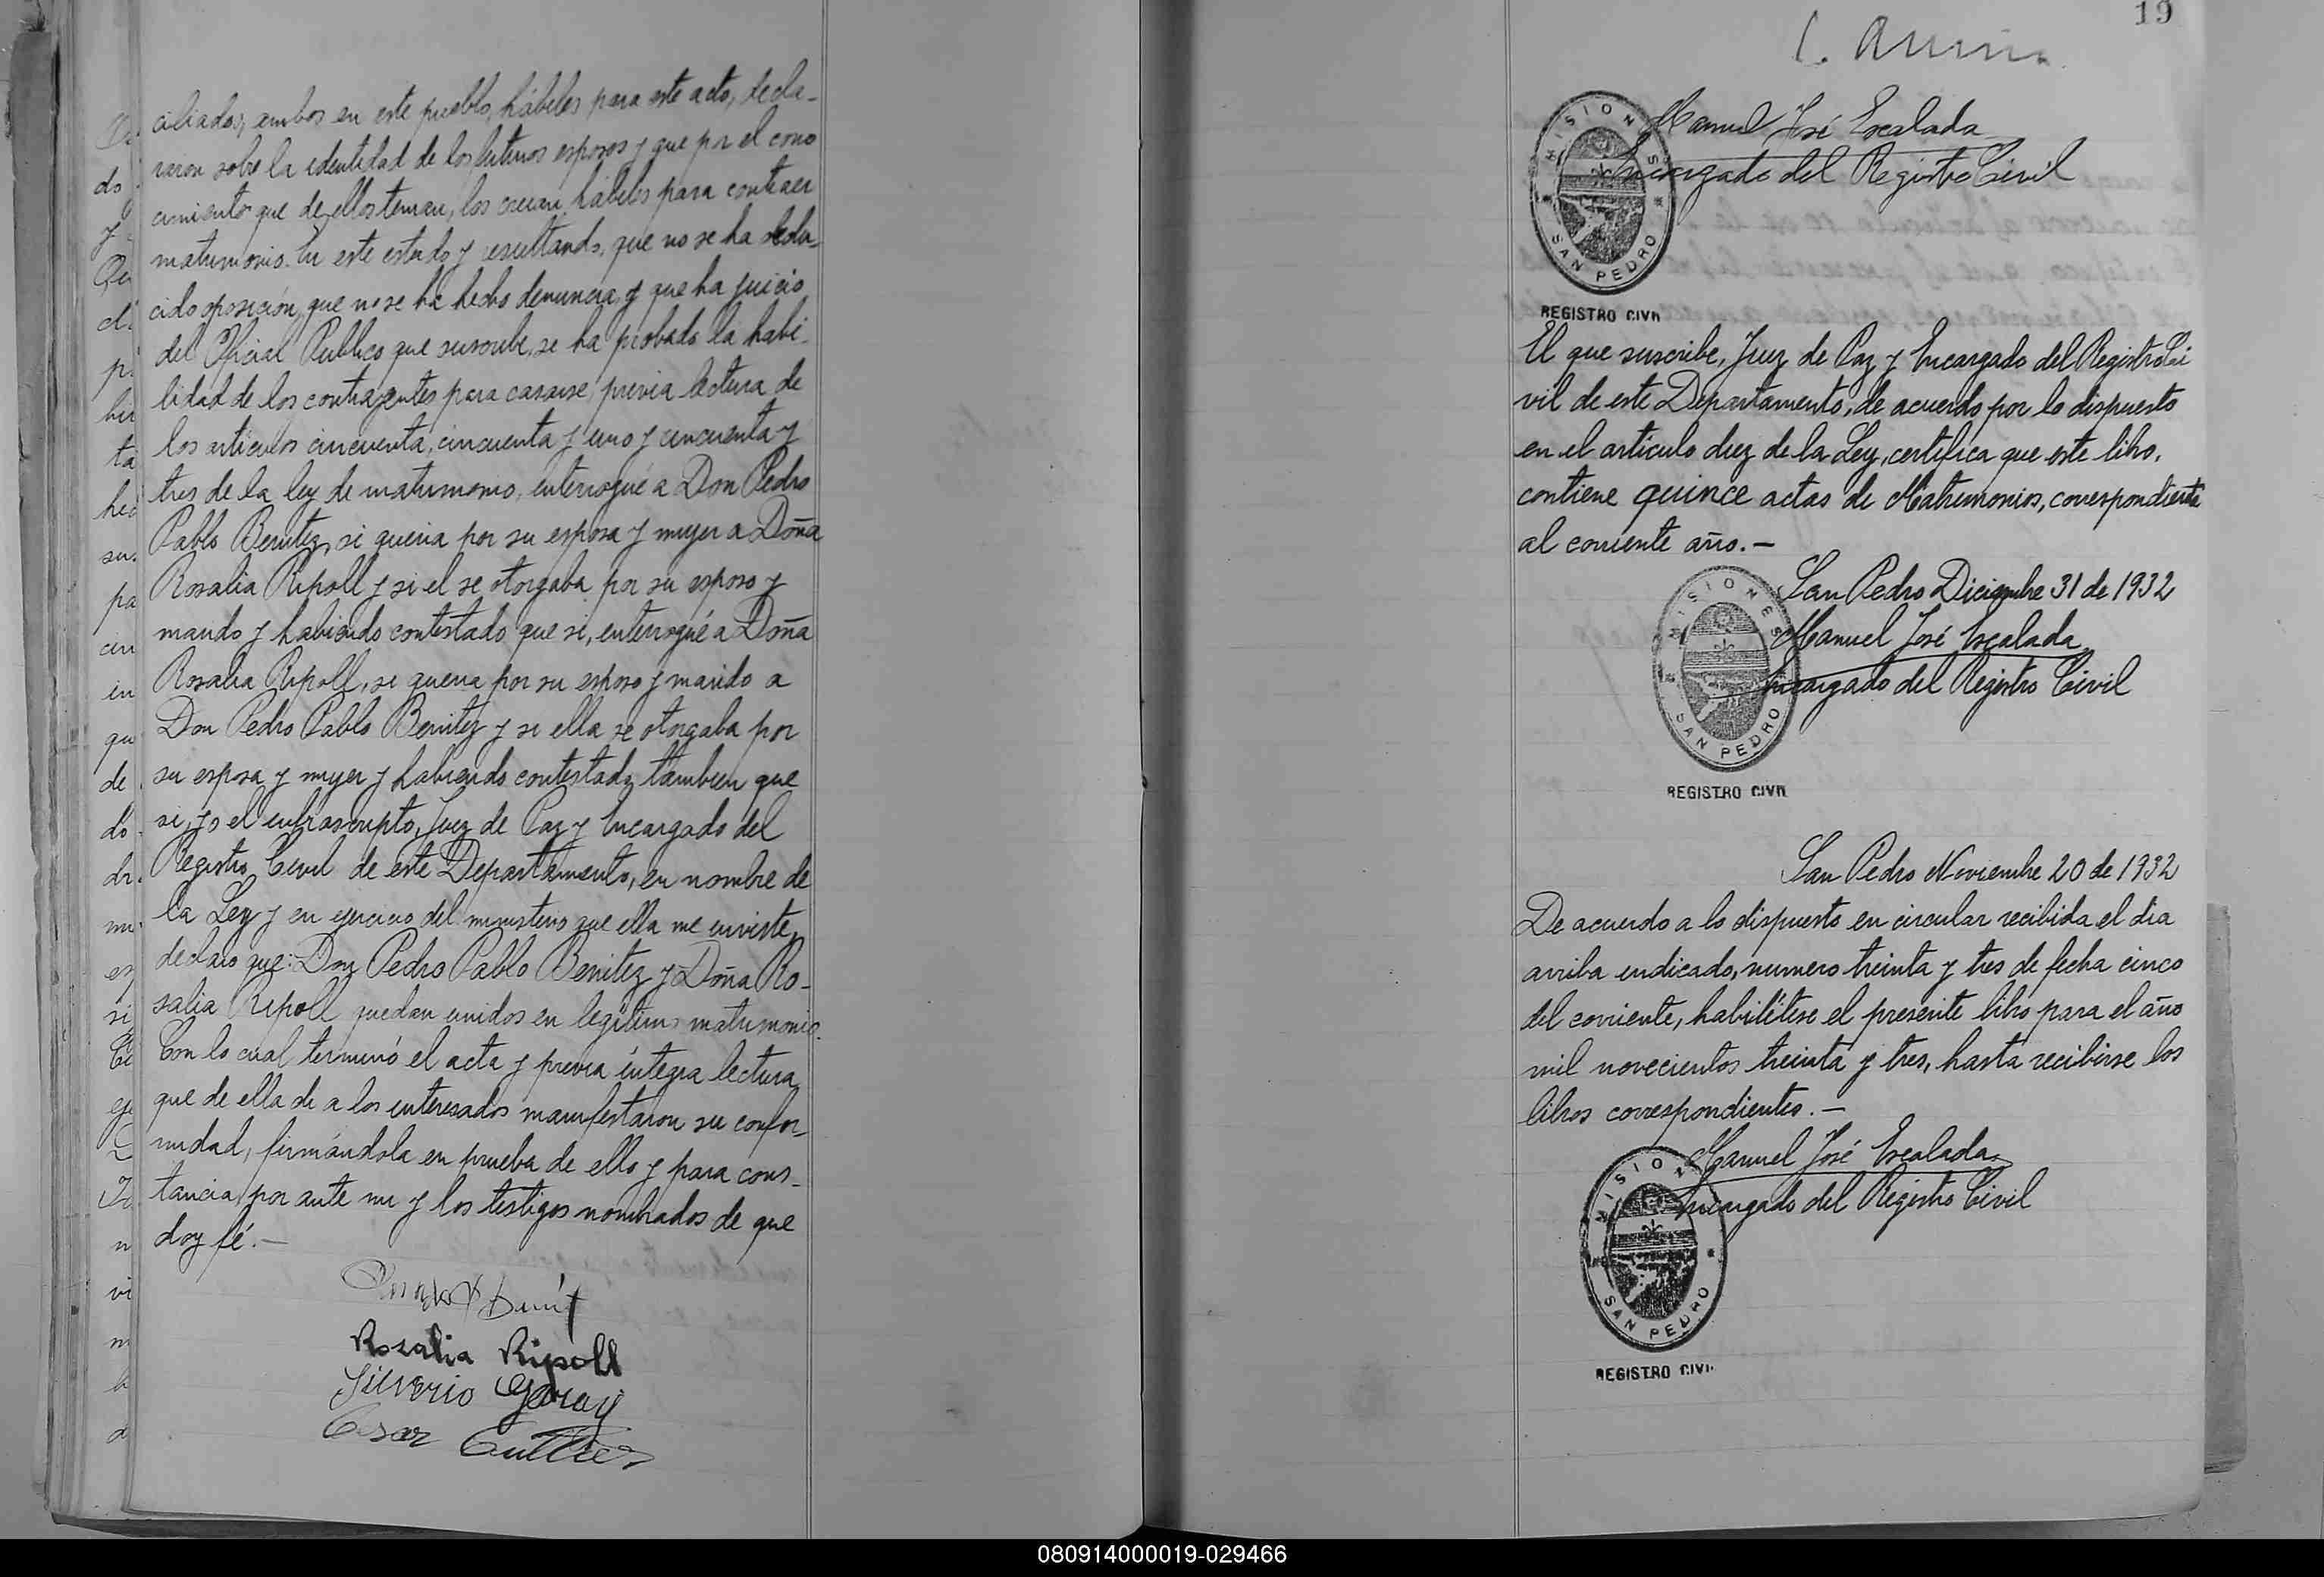 ciliados, ambos en este pueblo, hábiles para este acto, decla-
raron sobre la identidad de los futuros esposos y que por el cono
cimiento que de ellos tenian, los creian hábiles para contraer
matrimonio. En este estado y resultando, que no se ha dedu-
cido oposición, que no se ha hecho denuncia, y que ha juicio
del Oficial Publico que suscribe, se ha probado la habi-
lidad de los contrayentes para casarse, previa lectura de
los articulos cincuenta, cincuenta y uno y cincuenta y
tres de la ley de matrimonio, interrogué a Don Pedro
Pablo Benitez, si queria por su esposa y mujer a Doña
Rosalia Ripoll y si el se otorgaba por su esposo y
marido y habiendo contestado que si, interrogué a Doña
Rosalia Ripoll, si queria por su esposo y marido a
Don Pedro Pablo Benitez y si ella se otorgaba por
su esposa y mujer y habiendo contestado tambien que
si, yo el infrascripto, Juez de Paz y Encargado del
Registro Civil de este Departamento, en nombre de
la Ley y en ejercicio del ministerio que ella me inviste,
declaro que: Don Pedro Pablo Benitez y Doña Ro-
salia Ripoll quedan unidos en legitimo matrimonio.
Con lo cual terminó el acta y previa íntegra lectura
que de ella di a los interesados manifestaron su confor-
midad, firmándola en prueba de ello y para cons-
tancia, por ante mi y los testigos nombrados de que
doy fé.-
Rosalia Ripoll
Silverio Garay
Cesar
19
Manuel José Escalada
Encargado del Registro Civil
MISIONES
SAN PEDRO
REGISTRO CIVIL
El que suscribe, Juez de Paz y Encargado del Registro Ci
vil de este Departamento, de acuerdo por lo dispuesto
en el artículo diez de la Ley, certifica que este libro,
contiene quince actas de Matrimonios, correspondiente
al corriente año.-
San Pedro Diciembre 31 de 1932
Manuel José Escalada
Encargado del Registro Civil
MISIONES
SAN PEDRO
REGISTRO CIVIL
San Pedro Noviembre 20 de 1932
De acuerdo a lo dispuesto en circular recibida el dia
arriba indicado, numero treinta y tres de fecha cinco
del corriente, habilítese el presente libro para el año
mil novecientos treinta y tres, hasta recibirse los
libros correspondientes.-
Manuel José Escalada
Encargado del Registro Civil
MISIONES
SAN PEDRO
REGISTRO CIVIL
080914000019-029466